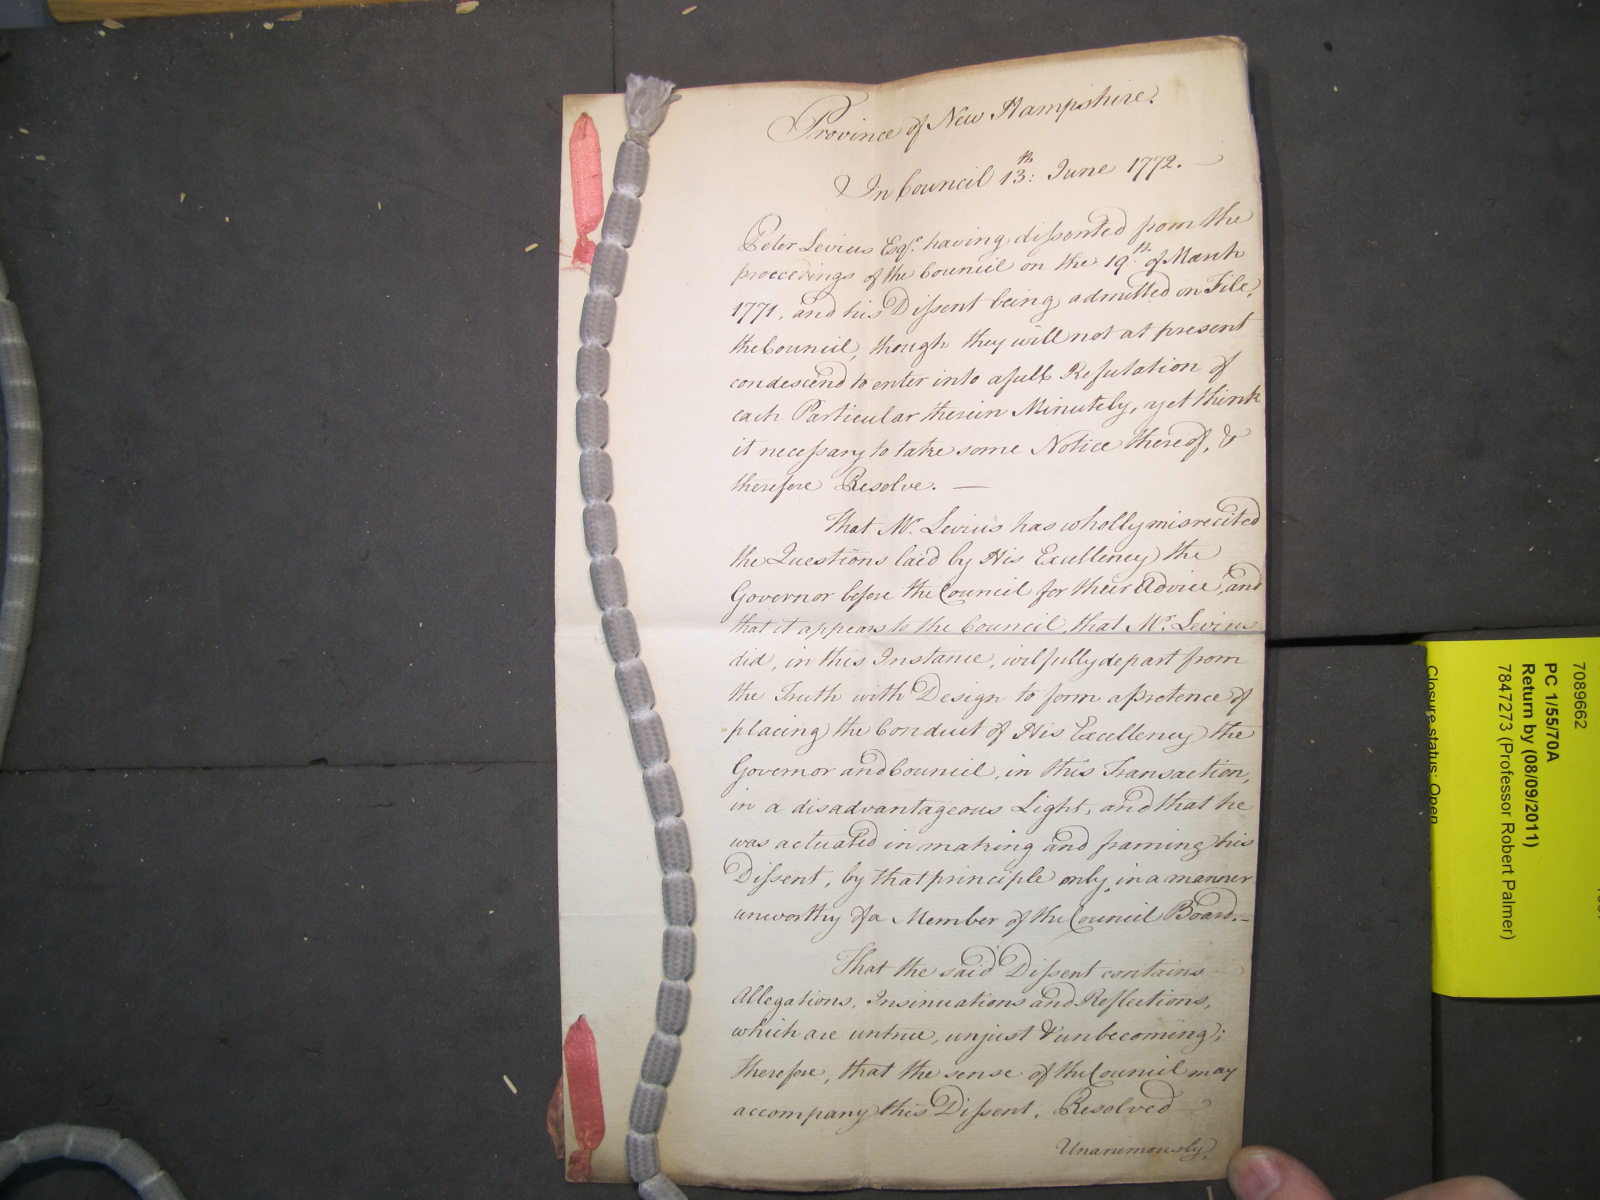 Province of New Hampshire.
In Council 13th: June 1772.
Peter Livius Esqr. having dissented from the
proceedings of the Council on the 19th. of March
1771, and his Dissent being admitted on File,
the Council, though they will not at present
condescend to enter into a full Refutation of
each Particular therein Minutely, yet think
it necessary to take some Notice thereof, &
therefore Resolve. —
That Mr. Livius has wholly misrecited
the Questions laid by His Excellency the
Governor before the Council for their Advice, and
that it appears to the Council, that Mr. Livius
did, in this Instance, wilfully depart from
the Truth with Design to form a pretence of
placing the Conduct of His Excellency the
Governor and Council, in this Transaction,
in a disadvantageous Light, and that he
was actuated in making and framing his
Dissent, by that principle only, in a manner
unworthy of a Member of the Council Board.—
That the said Dissent contains
Allegations, Insinuations and Reflections,
which are untrue, unjust & unbecoming;
therefore, that the sense of the Council may
accompany this Dissent, Resolved
Unanimously,
7089662
PC 1/55/70A
Return by (08/09/2011)
7847273 (Professor Robert Palmer)
Closure status: Open